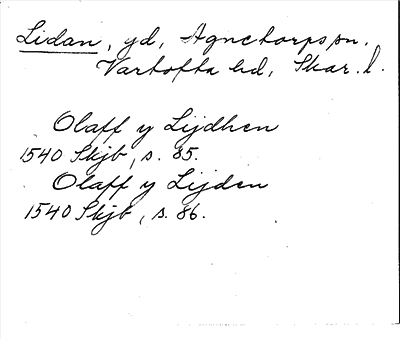 Lidan, yd, Agnetorps sn,
Vartofta hd, Skar. l.
Olaff y Lijdhen
1540 Skjb, s. 85.
Olaff y Lijden
1540 Skjb, s. 86.